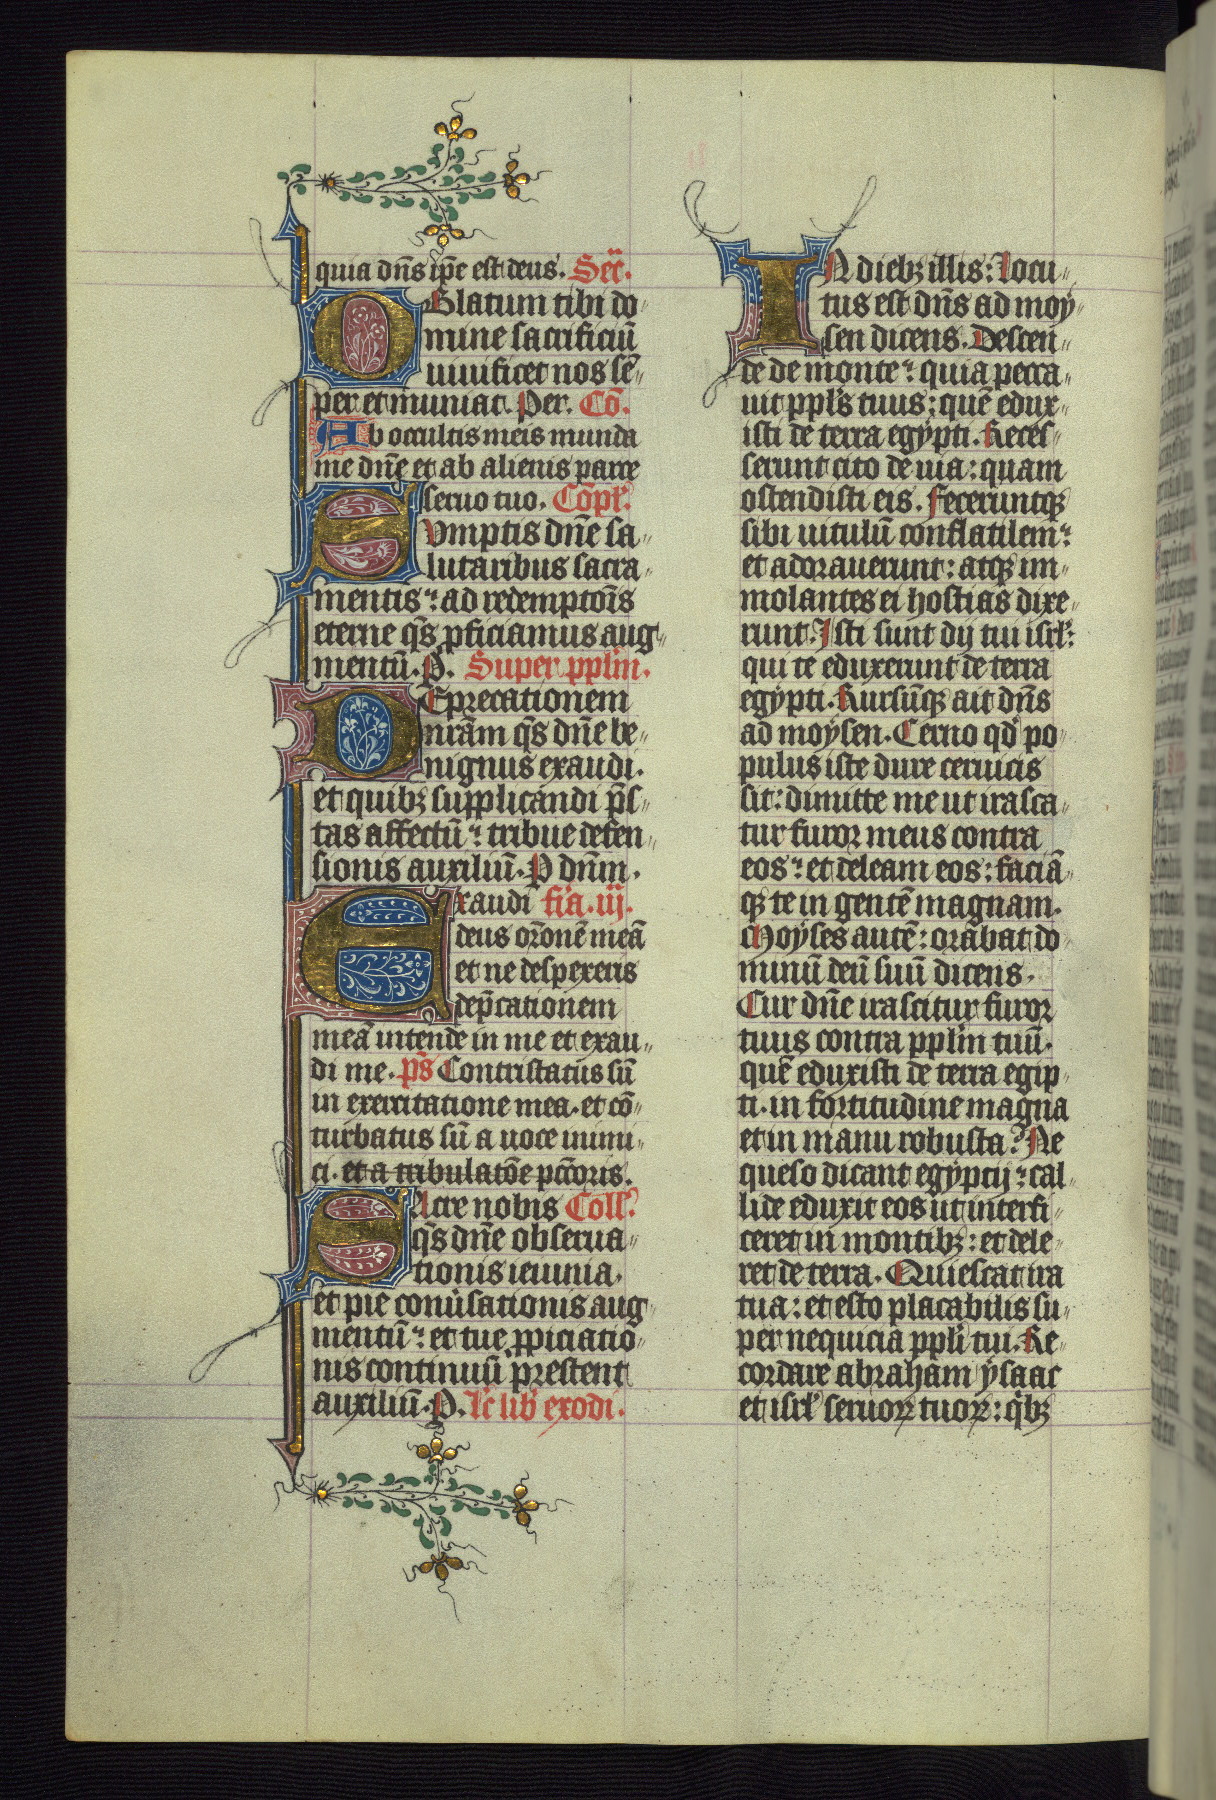 quia dn̄s ip̄e est deus. Secr̄.
OBlatum tibi do
mine sacrificiū
uiuificet nos sē
per et muniat. Per. Cō.
Ab occultis meis munda
me dn̄e et ab alienis parce
seruo tuo. Cōpl'.
SVmptis dn̄e sa
lutaribus sacra
mentis: ad redemptōis
eterne q̄s ꝓficiamus aug
mentū. P. Super ppl̄m.
DEprecationem
nr̄am q̄s dn̄e be
nignus exaudi.
et quibꝫ supplicandi p̄s
tas affectū: tribue defen
sionis auxiliū. P dn̄m.
Exaudi fīa. iij.
deus or̄onē meā
et ne despexeris
dep̄cationem
meā intende in me et exau
di me. p̄s Contristatus sū
in exercitatione mea. et cō
turbatus sū a uoce inimi
ci. et a tribulatōe pctōris.
SAcre nobis Coll'.
q̄s dn̄e obserua
tionis ieiunia.
et pie conu̾sationis aug
mentū: et tue ꝓpiciatio
nis continuū prestent
auxiliū. P. Lc̄ lib' exodi.
IN diebꝫ illis: Locu
tus est dn̄s ad moy
sen dicens. Descen
de de monte: quia pecca
uit ppl's tuus: quē edux
isti de terra egypti. Reces
serunt cito de uia: quam
ostendisti eis. Feceruntqꝫ
sibi uitulū conflatilem:
et adorauerunt: atqꝫ im
molantes ei hostias dixe
runt. Isti sunt dij tui isrl':
qui te eduxerunt de terra
egypti. Rursūqꝫ ait dn̄s
ad moysen. Cerno qd' po
pulus iste dure ceruicis
sit: dimitte me ut irasca
tur furor meus contra
eos: et deleam eos: faciā
qꝫ te in gentē magnam.
Moyses autē: orabat do
minū deū suū dicens.
Cur dn̄e irascitur furor
tuus contra ppl̄m tuū.
quē eduxisti de terra egip
ti. in fortitudine magna
et in manu robusta? Ne
queso dicant egyptij: cal
lide eduxit eos ut interfi
ceret in montibꝫ: et dele
ret de terra. Quiescat ira
tua: et esto placabilis su
per nequicia ppl'i tui. Re
cordare abraham ysaac
et isrl' seruoꝝ tuoꝝ: qi̾bꝫ